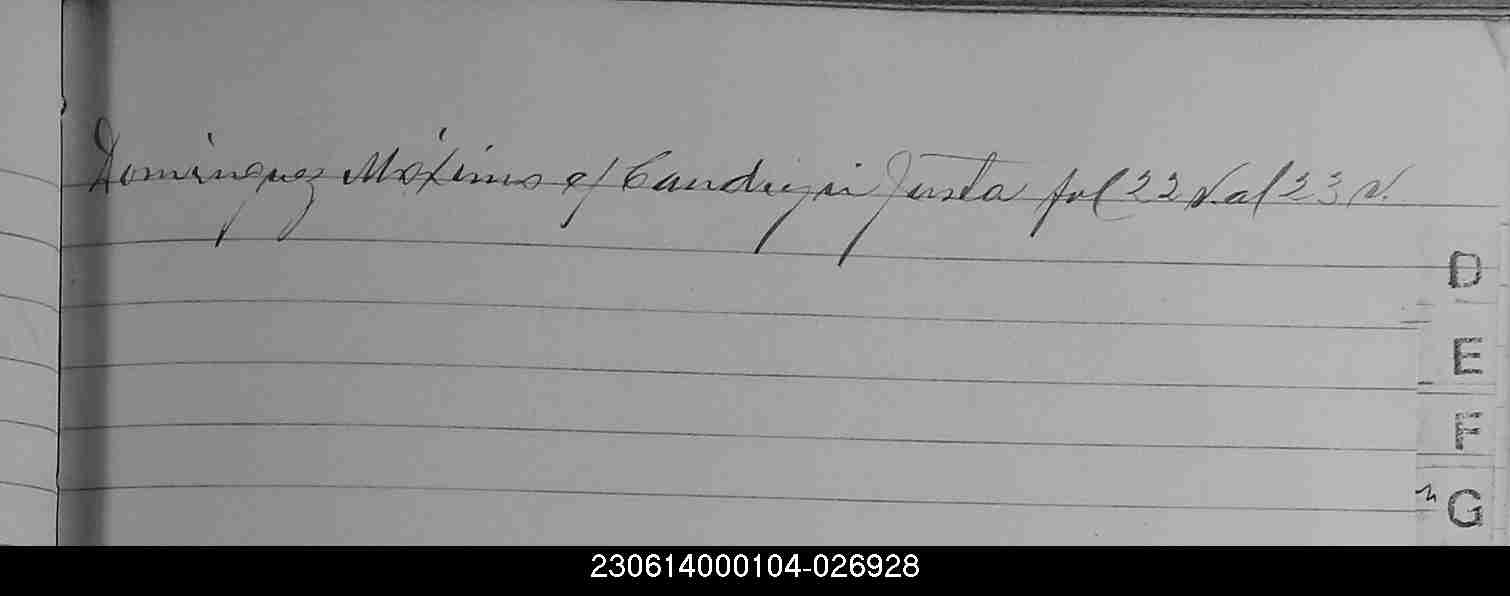 Dominguez Máximo c/ Candizin Justa fol 22 V al 23 V.
D
E
F
G
230614000104-026928